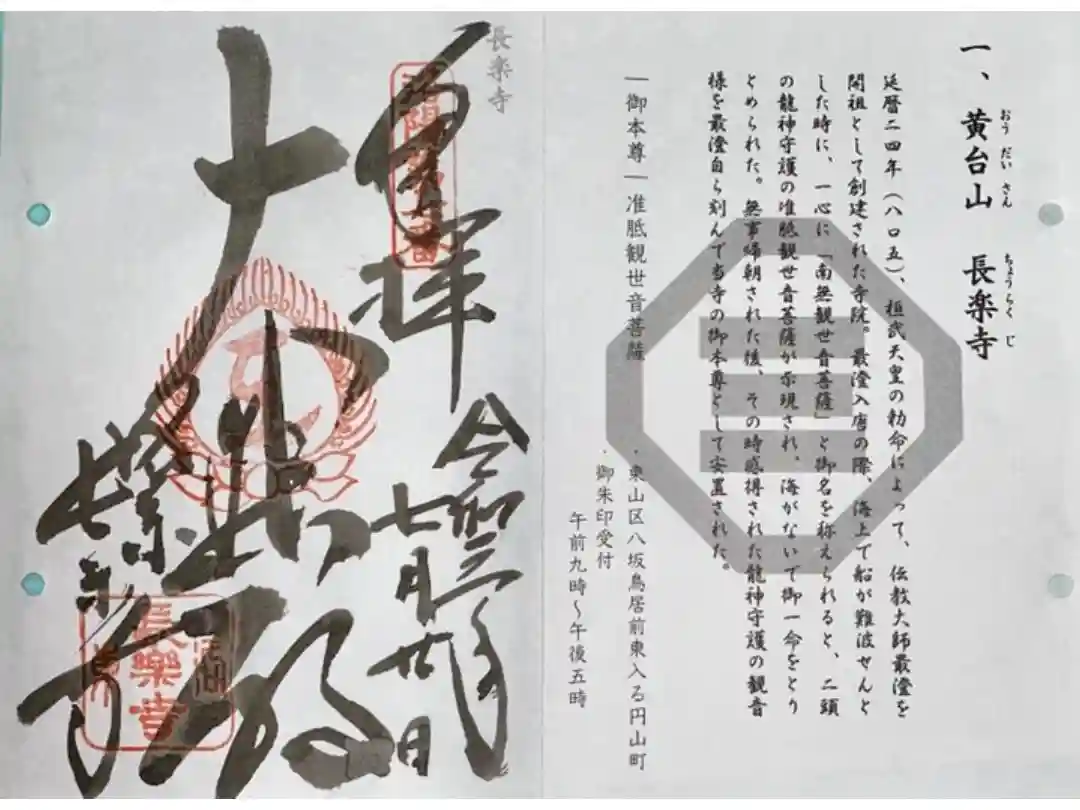 一、黄台山 長楽寺
おうだいさん ちょうらくじ
延暦二四年（八〇五）、桓武天皇の勅命によって、伝教大師最澄を
開祖として創建された寺院。最澄入唐の際、海上で船が難波せんと
した時に、一心に「南無観世音菩薩」と御名を称えられると、二頭
の龍神守護の准胝観世音菩薩が示現され、海がないで御一命をとり
とめられた。無事帰朝された後、その時感得された龍神守護の観音
様を最澄自ら刻んで当寺の御本尊として安置された。
―御本尊―准胝観世音菩薩
・東山区八坂鳥居前東入る円山町
・御朱印受付
午前九時〜午後五時
長楽寺
奉拝
令和三年
七月廿日
長楽寺
長樂寺